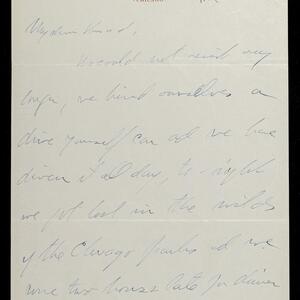 CHICAGO
My dear Maud,
We could not resist any
longer, we hired ourselves a
drive yourself car and we have
driven it all day, to-night
we got lost in the wilds
of the Chicago parks and were
two hours late for dinner